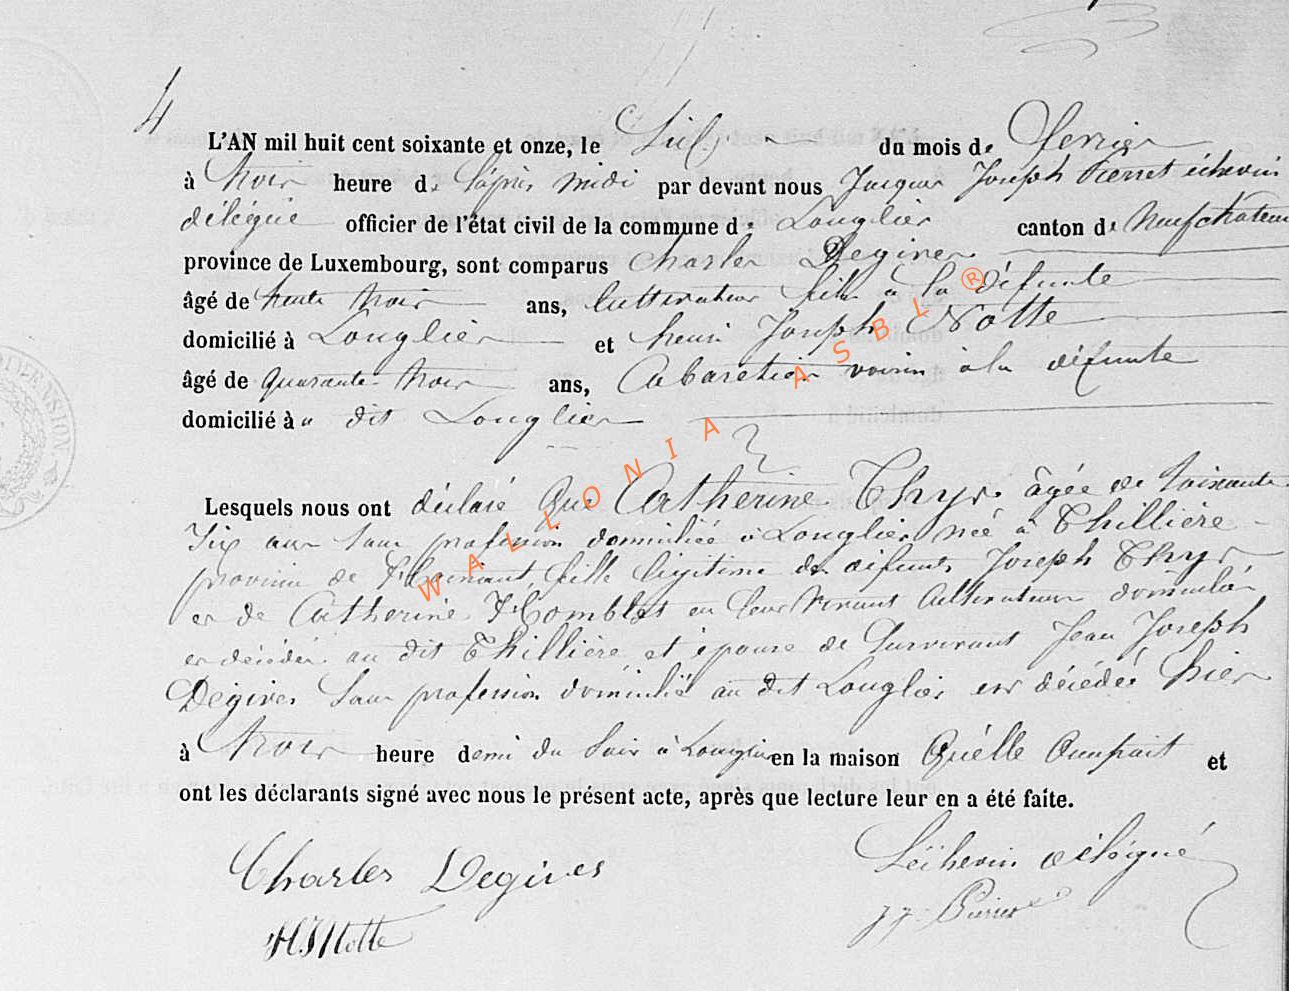 4
L'AN mil huit cent soixante et onze, le Six du mois de fevrier
à trois heure de l'après midi par devant nous Jacques Joseph Pierret échevin
délégué officier de l'état civil de la commune de Longlier canton de Neufchateau
province de Luxembourg, sont comparus Charles Degives
âgé de trente trois ans, cultivateur fils à la défunte
domicilié à Longlier et henri Joseph Notte
âgé de quarante trois ans, Cabaretier voisin à la défunte
domicilié à u dit Longlier
Lesquels nous ont déclaré que Catherine Thys âgée de soixante
six ans sans profession domiciliée à Longlier née à Thillière
province de hainaut, fille légitime de défunts Joseph Thys
et de Catherine Homblet en leur vivant Cultivateurs domiciliés
et décédés au dit Thillière et épouse de Survivant Jean Joseph
Degives sans profession domicilié au dit Longlier est décédée hier
à trois heure demi du soir à Longlier en la maison qu'elle occupait et
ont les déclarants signé avec nous le présent acte, après que lecture leur en a été faite.
Charles Degives
L'échevin délégué
HJNotte
JJ Pierret
WALLONIA ASBL ®